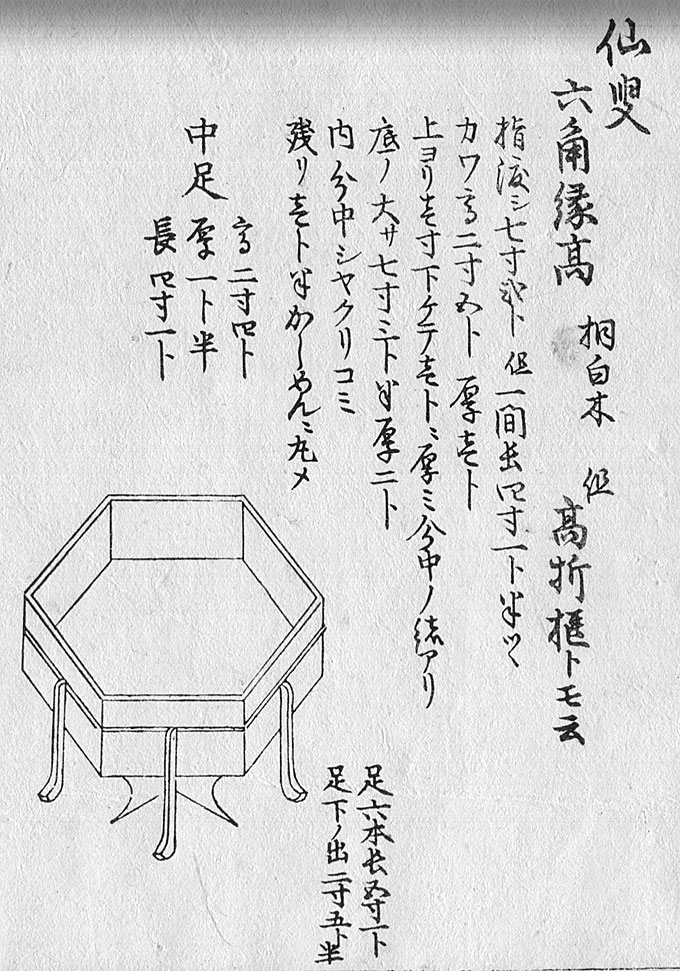 仙叟
六角縁高 桐白木 但高折櫃トモ云
指渡シ七寸弐ト 但一間長四寸一ト半ツヽ
カワ高二寸五ト 厚壱ト
上ヨリ壱寸下ケテ壱トニ厚ミ分中ノ縁アリ
底ノ大サ七寸三ト半厚二ト
内分中シヤクリコミ
残リ壱ト半かしめんニ丸メ
中足
高二寸四ト
厚一ト半
長四寸一ト
足六本長五寸一ト
足下ノ出二寸五ト半